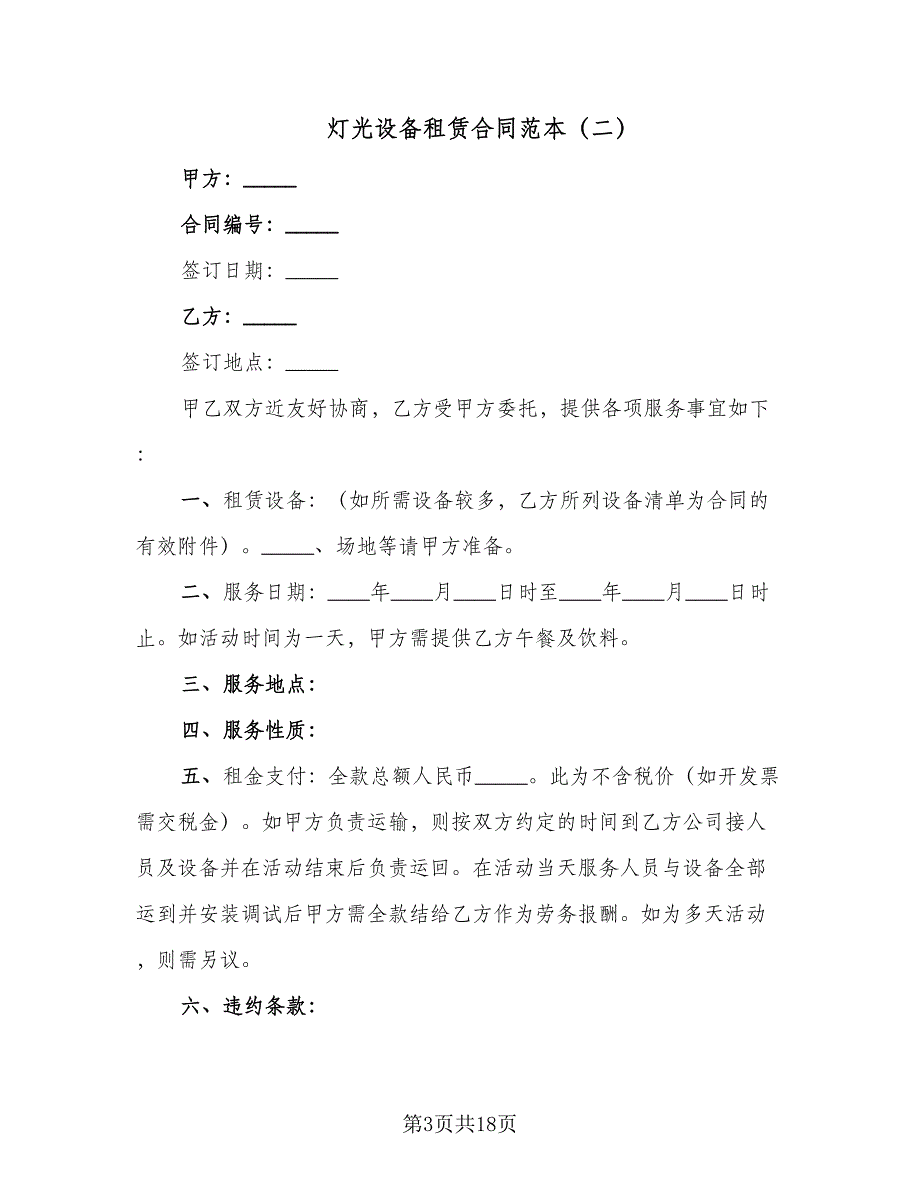 灯光设备租赁合同范本（二）
甲方：_____
合同编号：_____
签订日期：_____
乙方：_____
签订地点：_____
甲乙双方近友好协商，乙方受甲方委托，提供各项服务事宜如下
：
一、租赁设备：（如所需设备较多，乙方所列设备清单为合同的
有效附件）。_____、场地等请甲方准备。
二、服务日期：____年____月____日时至____年____月____日时
止。如活动时间为一天，甲方需提供乙方午餐及饮料。
三、服务地点：
四、服务性质：
五、租金支付：全款总额人民币_____。此为不含税价（如开发票
需交税金）。如甲方负责运输，则按双方约定的时间到乙方公司接人
员及设备并在活动结束后负责运回。在活动当天服务人员与设备全部
运到并安装调试后甲方需全款结给乙方作为劳务报酬。如为多天活动
，则需另议。
六、违约条款：
第3页共18页